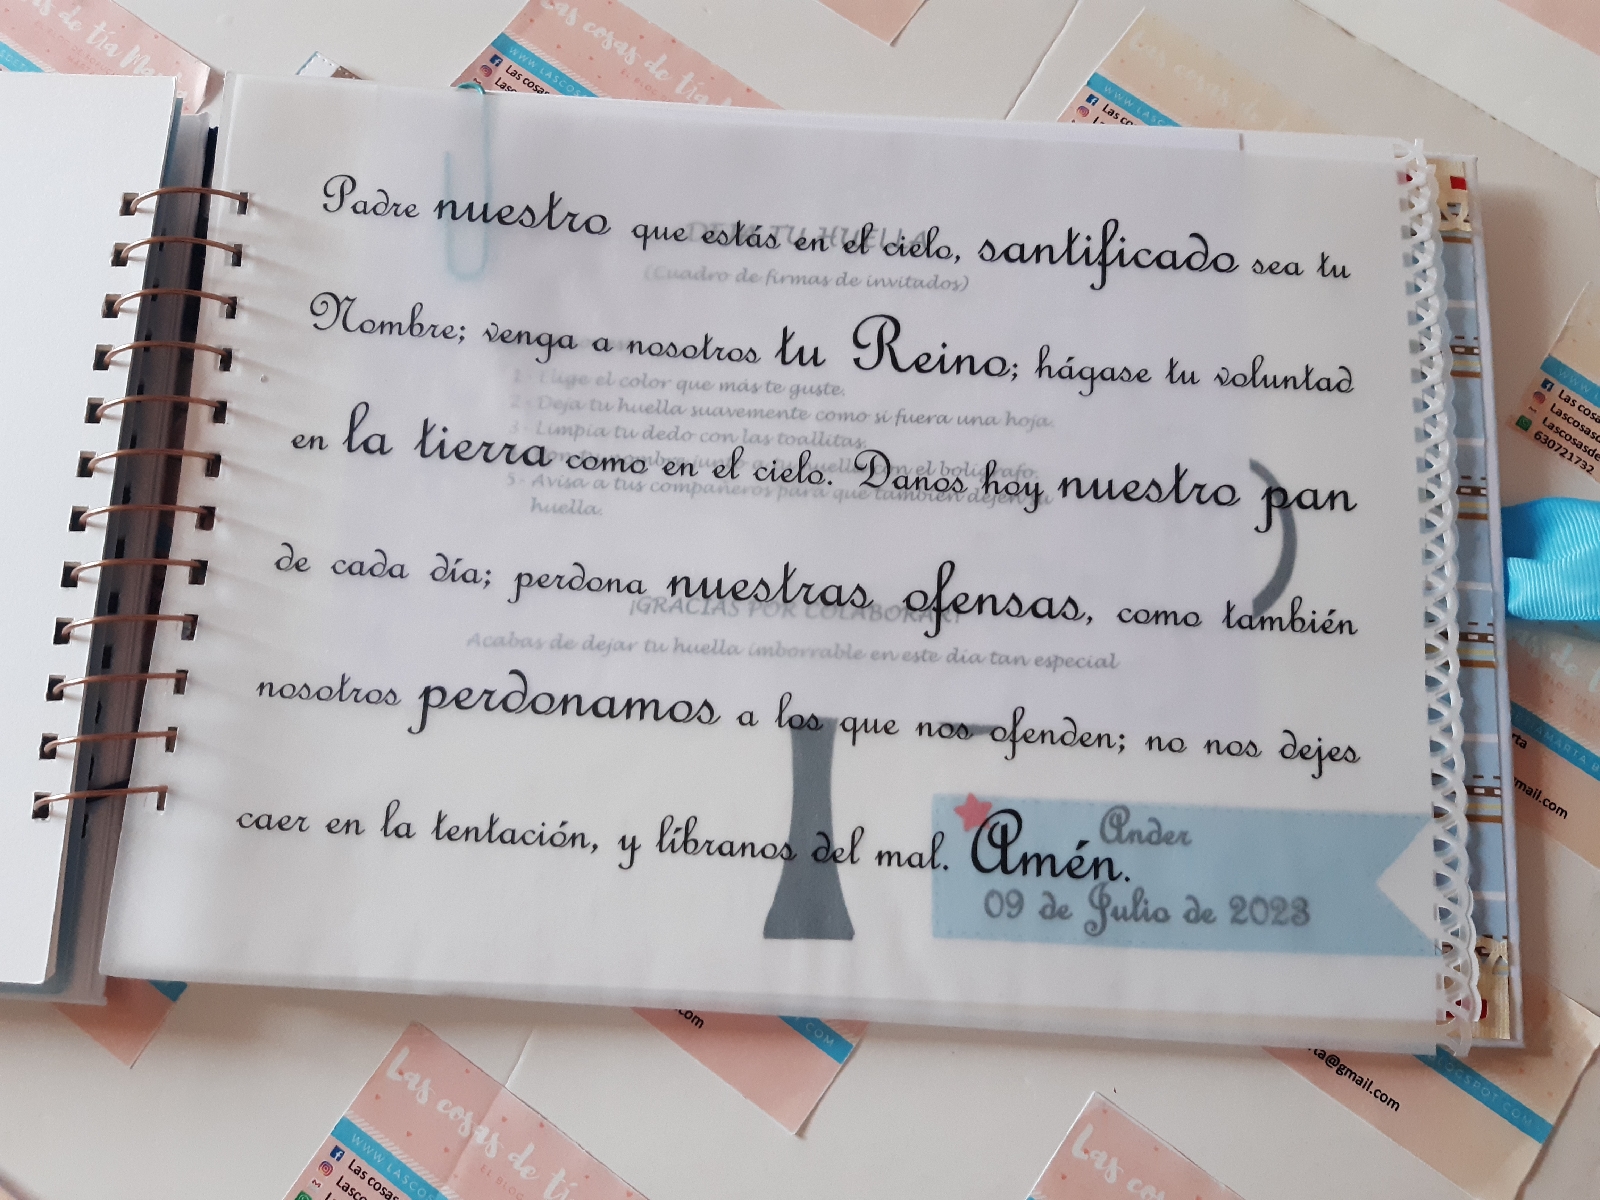 Padre nuestro que estás en el cielo, santificado sea tu
Nombre; venga a nosotros tu Reino; hágase tu voluntad
en la tierra como en el cielo. Danos hoy nuestro pan
de cada día; perdona nuestras ofensas, como también
nosotros perdonamos a los que nos ofenden; no nos dejes
caer en la tentación, y líbranos del mal. Amén.
DEJA TU HUELLA
(Cuadro de firmas de invitados)
1- Elige el color que más te guste.
2- Deja tu huella suavemente como si fuera una hoja.
3- Limpia tu dedo con las toallitas.
tu nombre junto a tu huella con el bolígrafo.
5- Avisa a tus compañeros para que también dejen su
huella.
¡GRACIAS POR COLABORAR!
Acabas de dejar tu huella imborrable en este día tan especial
Ander
09 de Julio de 2023
de tía Ma
Las cosas de tía Ma
WWW.LASCOSA
Las cosa
Las cosas de
WWW.LASC
Las co
Las cosa
Las cosas
Lascosasde
630721732
gmail.com
.com
COM
ta@gmail.com
OGSPOT.COM
Las cosas de tí
EL BLOG DE
WWW.LASCOS
Las cosas
Lasco
Las cosas